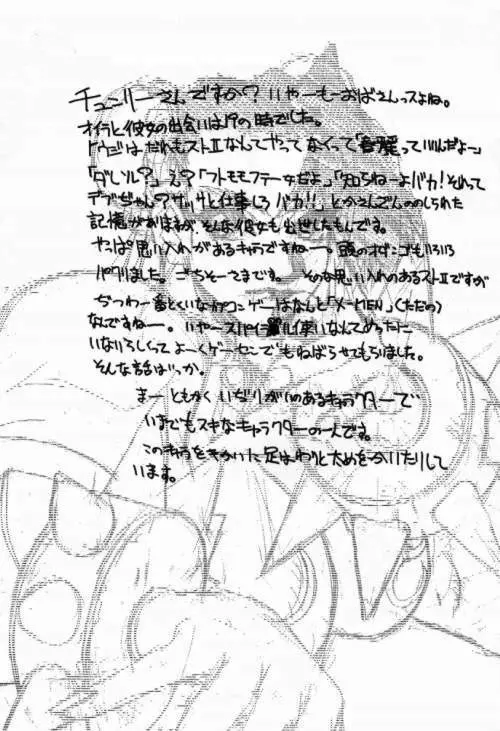 チュンリーさんですか? いやーもーおばさんっスよね。
オイラと彼女の出会いは19の時でした。
トウジはだれもストⅡなんてやってなくって「春麗っていいんだよー」
「ダレソレ?」え?「フトモモフテー女だよ」「知らねーよバカ!それって
デブじゃん?サッサと仕事しろバカ!!」とかさんざんののしられた
記憶がありますが、そんな彼女も出世したもんです。
やっぱ思い入れがあるキャラですねー。頭のオダンゴもいろいろ
パクリました。ごちそーさまです。 そのな思い入れのあるストⅡですが
ぢつわ一番とくいなカプコンゲーはなんと「X-MEN」(ただの)
なんですねー。いやースパイラル使いなんてめったに
いないらしくってよーくゲーセンでもねばらせてもらいました。
そんな話はいっか。
まーともかくいぢりがいのあるキャラクターで
いまでもスキなキャラクターの一人です。
このキャラをきっかけに足はわりと太めをかいたりして
います。